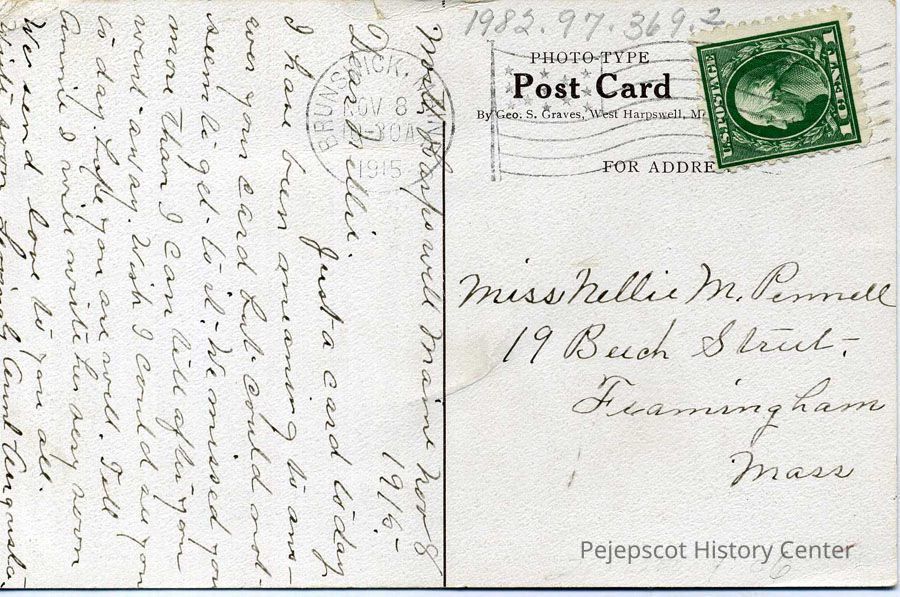 1982.97.369.2
PHOTO-TYPE
Post Card
By Geo. S. Graves, West Harpswell, Me
FOR ADDRE
U.S. POSTAGE
1 CENT 1
BRUNSWICK,
NOV 8
-30A
1915
MAINE
Miss Nellie M. Pennell
19 Beech Street-
Framingham
Mass
West Harpswell Maine Nov 8
1915-
Dear Nellie
Just a card to day
I have been meaning to ans-
wer your card but could not
seem to get to it. We missed you
more than I can tell after you
went away. Wish I could see you
to day. Hope you are well. Tell
Annie I will write her very soon
We send love to you all.
Write soon Lovingly Aunt Augusta
Pejepscot History Center